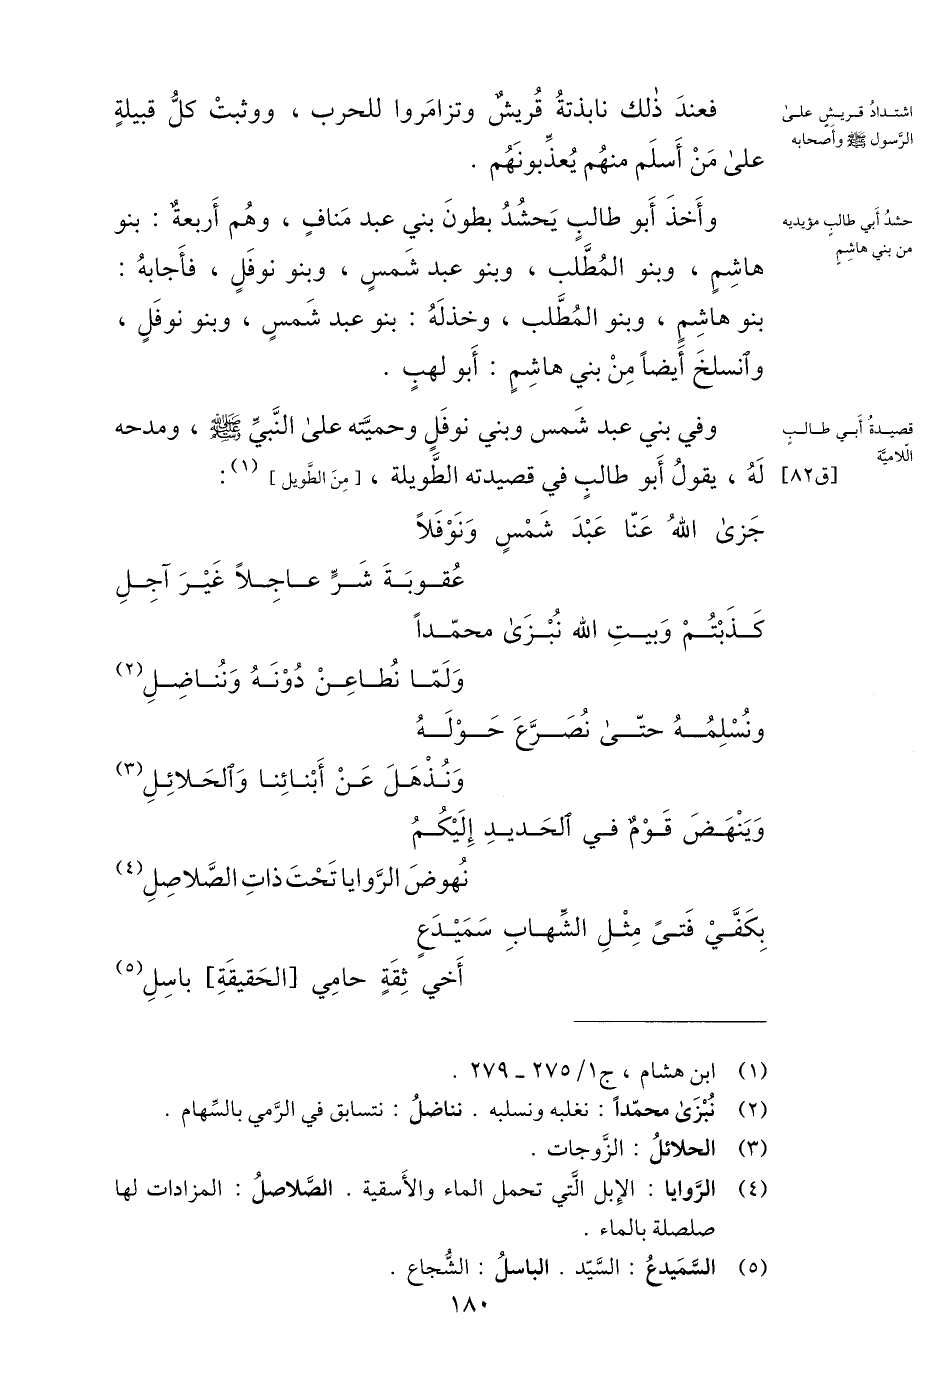 اشتدادُ قريشٍ علىٰ
الرَّسول ﷺ وأصحابه
فعندَ ذٰلك نابذتهُ قُريشٌ وتزامَروا للحرب ، ووثبتْ كلُّ قبيلةٍ
علىٰ مَنْ أَسلَم منهُم يُعذِّبونَهُم .
حشدُ أَبي طالبٍ مؤيديه
من بني هاشِمٍ
وأَخذَ أَبو طالبٍ يَحشُدُ بطونَ بني عبد مَنافٍ ، وهُم أَربعةٌ : بنو
هاشِمٍ ، وبنو المُطَّلب ، وبنو عبد شَمسٍ ، وبنو نوفَلٍ ، فأَجابهُ :
بنو هاشِمٍ ، وبنو المُطَّلب ، وخذلَهُ : بنو عبد شَمسٍ ، وبنو نوفَلٍ ،
وٱنسلخَ أَيضاً مِنْ بني هاشِمٍ : أَبو لهبٍ .
قصيدةُ أَبي طالبٍ
اللّاميَّة
وفي بني عبد شَمس وبني نوفَلٍ وحميَّته علىٰ النَّبيِّ ﷺ ، ومدحه
[ق٨٢] لَهُ ، يقولُ أَبو طالبٍ في قصيدته الطَّويلة ، [ مِنَ الطَّويل ] (١) :
جَزىٰ اللهُ عَنّا عَبْدَ شَمْسٍ وَنَوْفَلاً
عُقوبَةَ شَرٍّ عاجِلاً غَيْرَ آجِلِ
كَذَبْتُمْ وَبيتِ الله نُبْزَىٰ محمّداً
وَلَمّا نُطاعِنْ دُوْنَهُ وَنُناضِلِ(٢)
ونُسْلِمُهُ حتّىٰ نُصَرَّعَ حَوْلَهُ
وَنُذْهَلَ عَنْ أَبْنائِنا وَٱلحَلائِلِ(٣)
وَيَنْهَضَ قَوْمٌ في ٱلحَديدِ إِلَيْكُمُ
نُهوضَ الرَّوايا تَحْتَ ذاتِ الصَّلاصِلِ(٤)
بِكَفَّيْ فَتىً مِثْلِ الشِّهابِ سَمَيْدَعٍ
أَخي ثِقَةٍ حامِي [الحَقيقَةِ] باسِلِ(٥)
(١) ابن هشام ، ج١/ ٢٧٥ ـ ٢٧٩ .
(٢) نُبْزَىٰ محمّداً : نغلبه ونسلبه . نناضلُ : نتسابق في الرَّمي بالسِّهام .
(٣) الحلائلُ : الزَّوجات .
(٤) الرَّوايا : الإِبل الَّتي تحمل الماء والأَسقية . الصَّلاصلُ : المزادات لها
صلصلة بالماء .
(٥) السَّمَيدعُ : السَّيّد . الباسلُ : الشُّجاع .
١٨٠